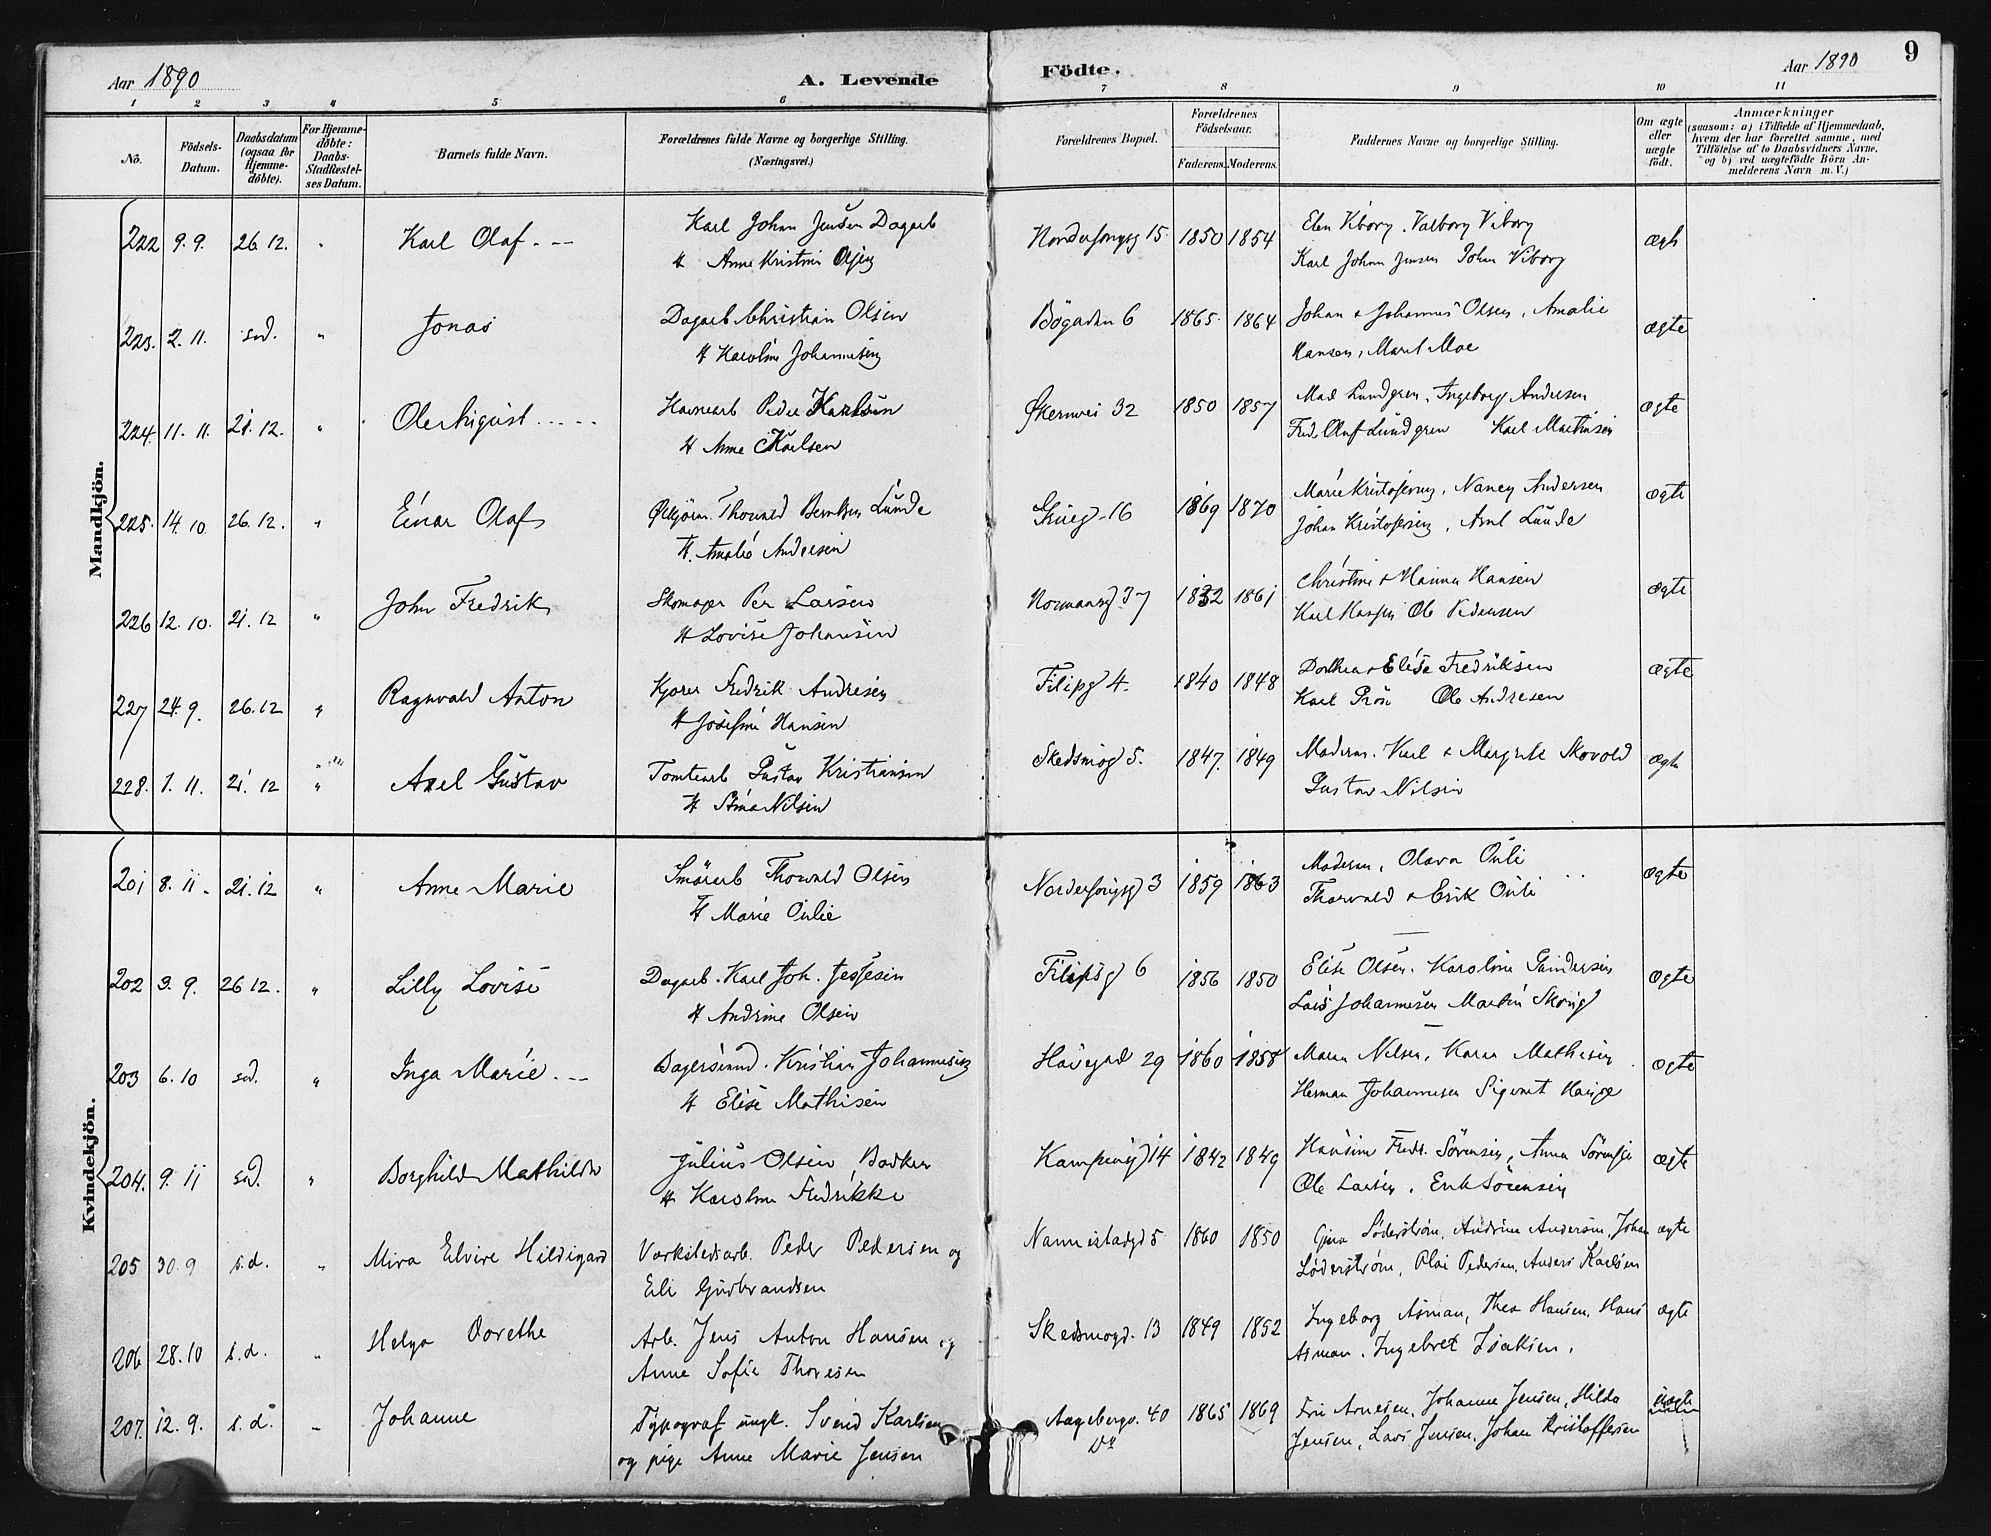 Aar 1890
A. Levende
Födte.
Aar 1890
9
1 2 3 4 5 6 7 8 9 10 11
No.
Födsels-
Datum.
Daabsdatum
(ogsaa for
Hjemme-
döbte).
For Hjemme-
döbte:
Daabs-
Stadfæstel-
ses Datum.
Barnets fulde Navn.
Forældrenes fulde Navne og borgerlige Stilling.
(Næringsvei.)
Forældrenes Bopæl.
Forældrenes
Födselsaar.
Faderens. Moderens.
Faddernes Navne og borgerlige Stilling.
Om ægte
eller
uægte
födt.
Anmærkninger
(saasom: a) i Tilfælde af Hjemmedaab,
hvem der har forrettet samme, med
Tilföielse af to Daabsvidners Navne,
og b) ved uægtefödte Börn An-
melderens Navn m. V.)
Mandkjön.
222 9.9. 26.12. " Karl Olaf
Karl Johan Jensen Dagarb
H Anne Kristine
15 1850 1854
Viborg, Valborg Viborg
Karl Johan Jensen Johan Viborg
223. 2.11. s.d. " Jonas
Dagarb Christian Olsen
H Karoline Johannesen
6 1865 1864
Johan & Johannes Olsen, Amalie
Hansen, Marit Moe
ægte
224. 11.11. 21.12. "
Peder Karlsen
H Anne Karlsen
Økernvei 32 1850 1857
Lundgren, Ingeborg Andersen
Fred. Oluf Lundgren Karl Martinsen
ægte
225. 14.10 26.12. " Einar Olaf
Thorvald Berntsen Lunde
H. Amalie Andersen
16 1869 1870
Marie Kristofersen, Nancy Andersen
Johan Kristofersen, Lunde
ægte
226 12.10. 21.12 " John Fredrik
Skomager Per Larsen
H Lovise Johansen
Normansg 37 1832 1861
Christine & Hanna Hansen
Karl Hansen Ole Pedersen
ægte
227 24.9. 26.12 " Ragnvald Anton
Kjører Fredrik Andresen
H Josefine Hansen
Filipsg 4. 1840 1848
Dorthea & Elise Fredriksen
Karl Ole Andresen
ægte
228. 1.11. 21.12 " Axel Gustav
Tomtearb Gustav Kristiansen
H Nilsen
Skedsmog 5. 1847. 1849
Moderen. Karl & Margrete Skovold
Gustav Nilsen
ægte
Kvindekjön.
201 8.11. 21.12 " Anne Marie
Thorvald Olsen
H Marie Oulie
3 1859 1863
Moderen, Olava Ouli
Thorvald & Erik Ouli
ægte
202 3.9. 26 12. " Lilly Lovise
Dagarb. Karl Joh. Jessesen
H Andrine Olsen
Filipsg 6 1856 1850
Elise Olsen. Karoline Gundersen
Lars Johannesen Martin
ægte
203 6.10 s.d. " Inga Marie
Kristian Johannesen
H Elise Mathisen
29 1860 1858
Maren Nilsen, Karen Mathisen
Herman Johannesen Sigvart
ægte
204. 9.11 s.d. " Borghild Mathilde
Julius Olsen Bødker
H Karoline Fredrikke
14 1842 1849
Fredr. Sørensen, Anna
Ole Larsen, Erik Sørensen
ægte
205 30.9 s.d. " Mira Elvire Hildigard
Værkstedsarb. Peder Pedersen og
Eli Gudbrandsen
5 1860 1850
Gina Söderström, Andrine Andersen, Johan
Söderström, Olai Pedersen, Anders Karlsen
ægte
206 28.10 s.d. " Helga Dorethe
Arb. Jens Anton Hansen og
Anne Sofie Thoresen
Skedsmogd. 13 1849 1852
Ingeborg Asman, Thea Hansen, Hans
Asman, Ingebret Isaksen.
ægte
207. 12.9. s.d. " Johanne
Typograf ungk. Svend Karlsen
og pige Anne Marie Jensen
Aagebergv. 40 1865 1869
Arnesen, Johanne Jensen, Hilda
Jensen, Lars Jensen, Johan Kristoffersen
uægte